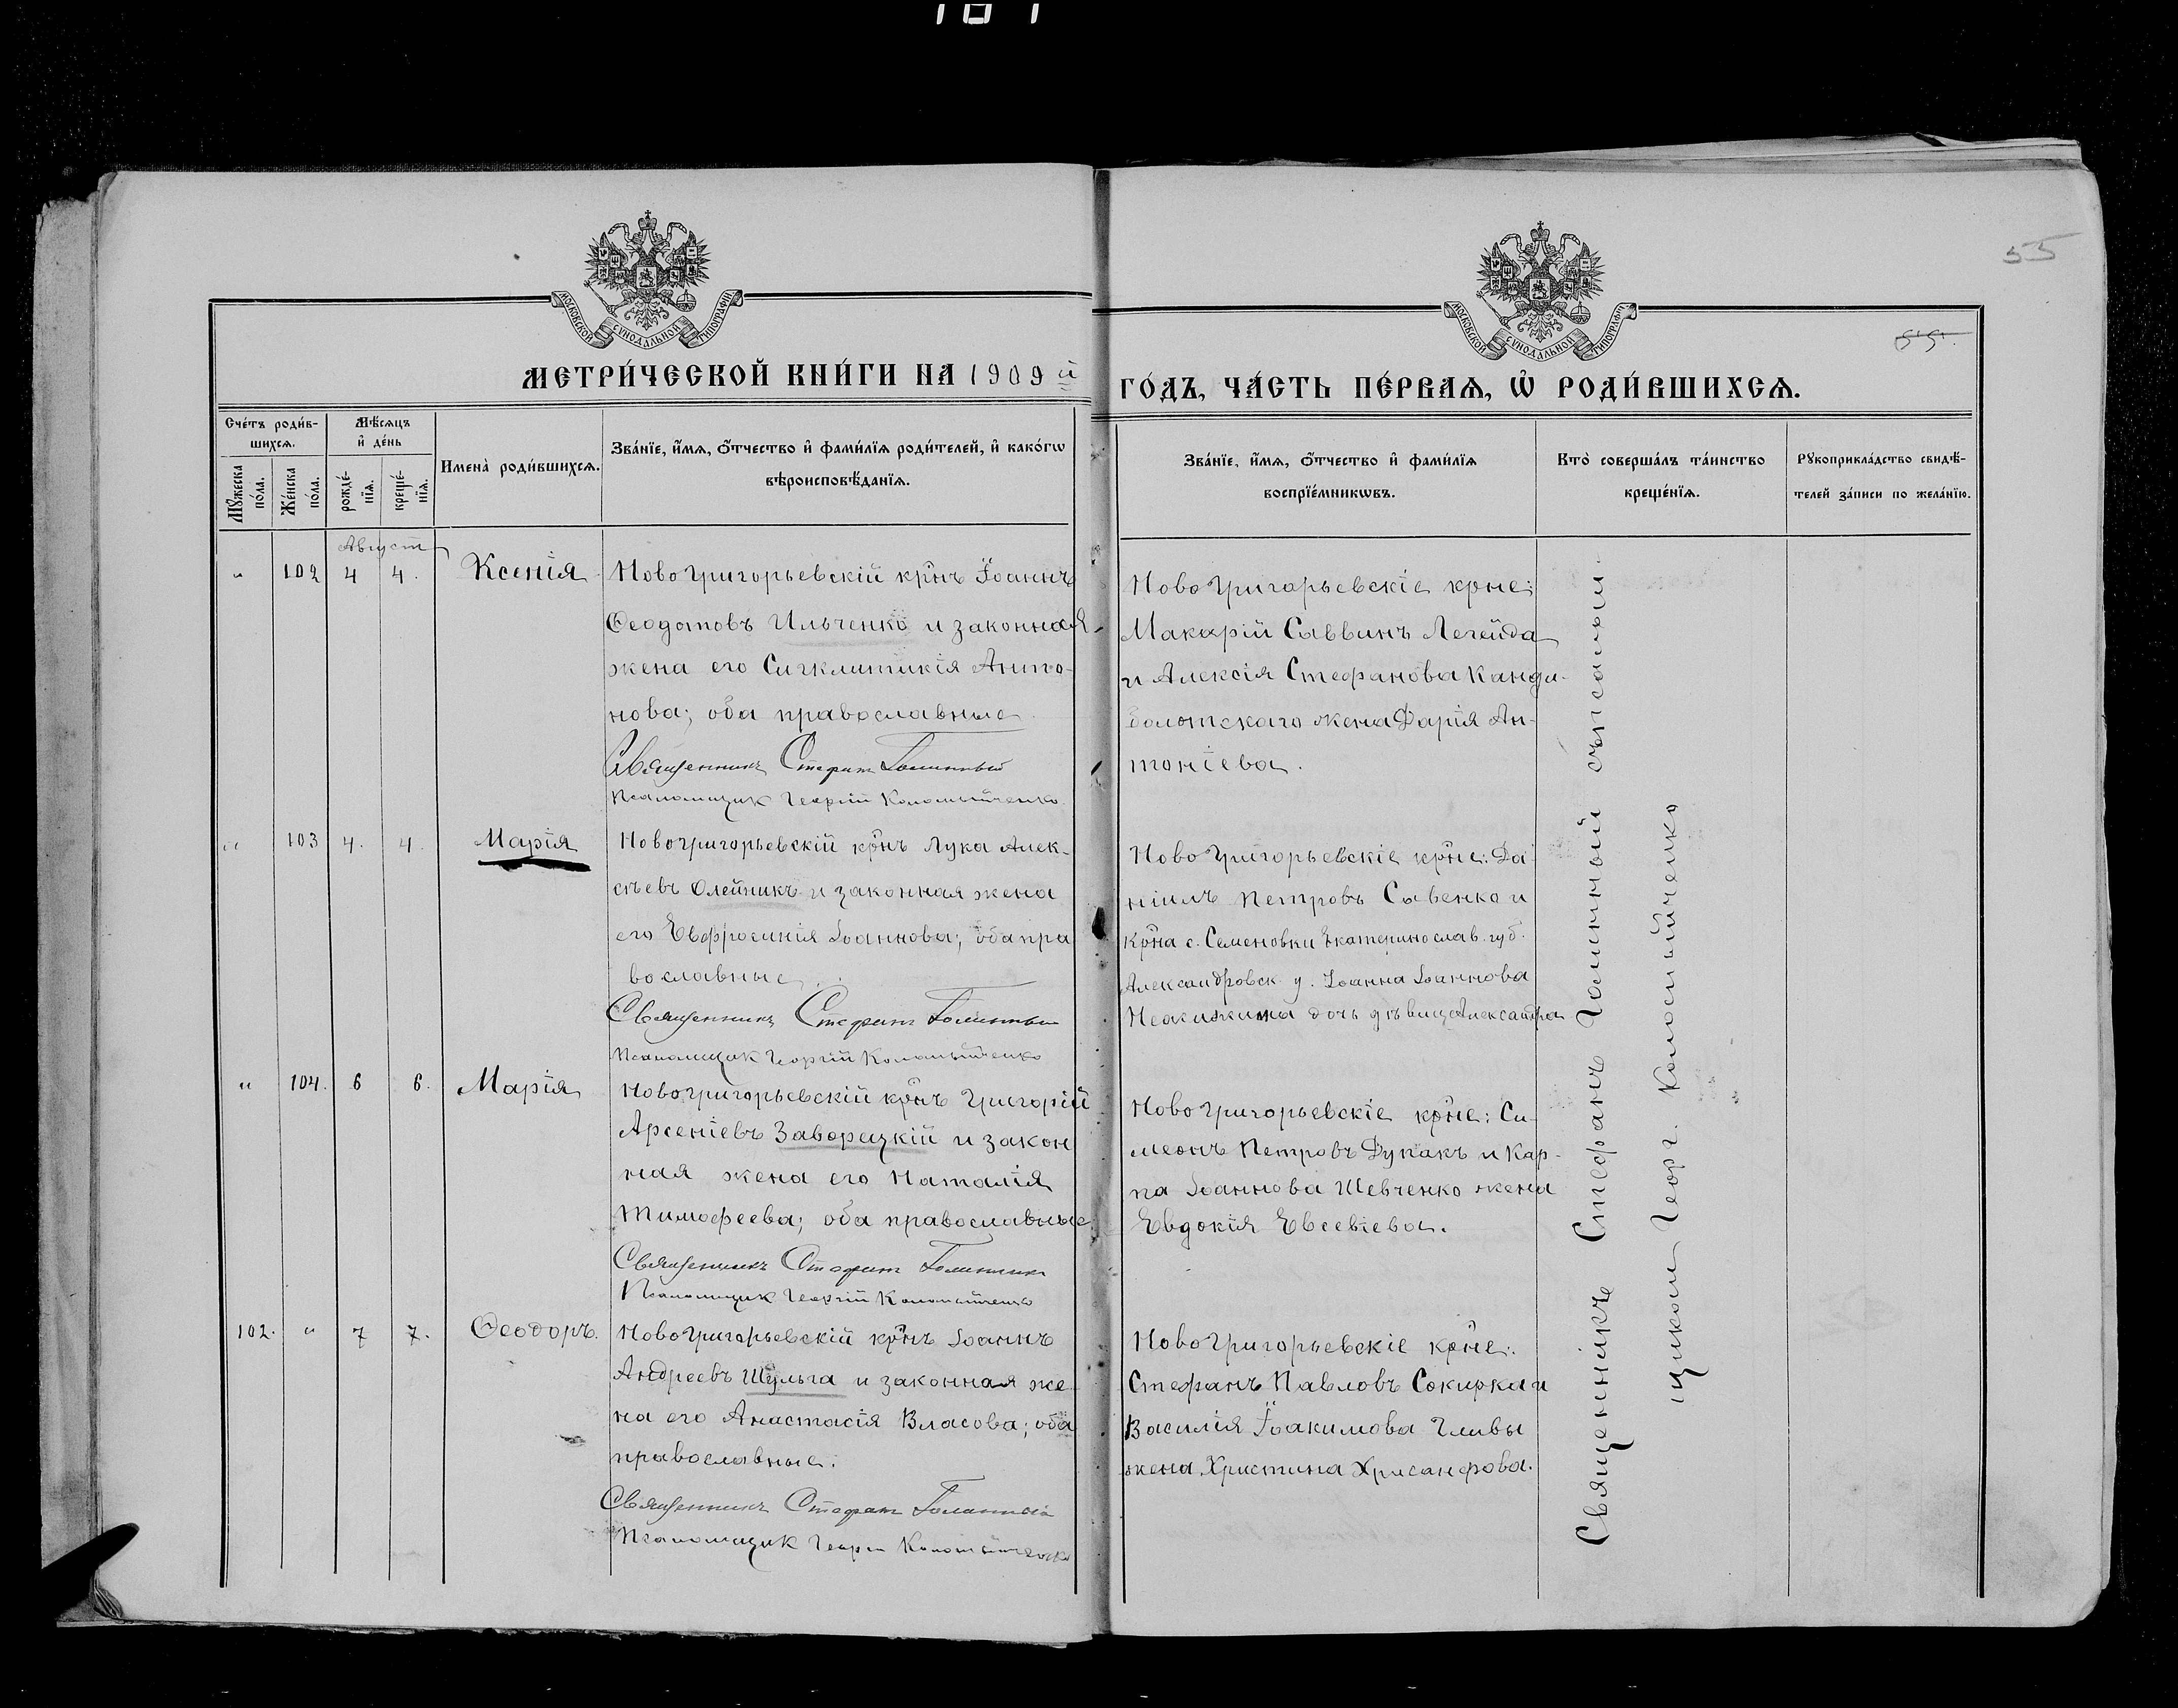 55
55.
МОСКОВСКОЙ СѴНОДАЛЬНОЙ ТИПОГРАФІИ
МОСКОВСКОЙ СѴНОДАЛЬНОЙ ТИПОГРАФІИ
МЕТРИ́ЧЕСКОЙ КНИ́ГИ НА 1909 й ГО́ДЪ, ЧА́СТЬ ПЕ́РВАѦ, Ѡ҆ РОДИ́ВШИХСѦ.
Сче́тъ роди́в-
шихсѧ.
Мꙋ́жеска по́ла.
Же́нска по́ла.
Мѣ́сѧцъ
и҆ де́нь
рожде́-
нїѧ.
креще́-
нїѧ.
Имена̀ роди́вшихсѧ.
Зва́нїе, и҆́мѧ, ѻ҆́тчество и҆ фами́лїѧ роди́телей, и҆ како́гѡ
вѣроисповѣ́данїѧ.
Зва́нїе, и҆́мѧ, ѻ҆́тчество и҆ фами́лїѧ
воспрїе́мникѡвъ.
Кто̀ соверша́лъ та́инство
креще́нїѧ.
Рꙋкоприкла́дство свидѣ́-
телей за́писи по жела́нїю.
Август
" 102 4 4. Ксенія
Новогригорьевскій крнъ Іоаннъ
Ѳеодотовъ Ильченко и законная
жена его Сигклитикія Анто-
нова; оба православные
Священникъ Стефанъ Голинный
Псаломщик Георгій Коломыйченко
Новогригорьевскіе крне:
Макарій Саввинъ Легейда
и Алексія Стефанова Канди-
болотскаго жена Дарія Ан-
тоніева.
" 103 4. 4. Марія
Новогригорьевскій крнъ Лука Алек-
сѣевъ Олейникъ и законная жена
его Евфросинія Іоаннова; оба пра
вославные
Священникъ Стефанъ Голинный
Псаломщик Георгій Коломыйченко
Новогригорьевскіе крне: Да-
ніилъ Петровъ Савенко и
крна с. Семеновки Екатеринослав. губ.
Александровск. у. Іоанна Іоаннова
дочь дѣвица Александра
" 104. 6 6. Марія
Новогригорьевскій крнъ Григорій
Арсеніевъ Заворецкій и закон
ная жена его Наталія
Тимофеева; оба православные.
Священникъ Стефанъ Голинный
Псаломщик Георгій Коломыйченко
Новогригорьевскіе крне: Си-
меонъ Петровъ Дукакъ и Кар-
па Іоаннова Шевченко жена
Евдокія Евсевіева.
102. " 7 7. Ѳеодоръ.
Новогригорьевскій крнъ Іоаннъ
Андреевъ Шульга и законная же-
на его Анастасія Власова; оба
православные.
Священникъ Стефанъ Голинный
Псаломщик Георгій Коломыйченко
Новогригорьевскіе крне:
Стефанъ Павловъ Сокирка и
Василія Іоакимова Гливы
жена Христина Хрисанфова.
Священникъ Стефанъ Голинный съ псалом-
щиком Георг. Коломыйченко